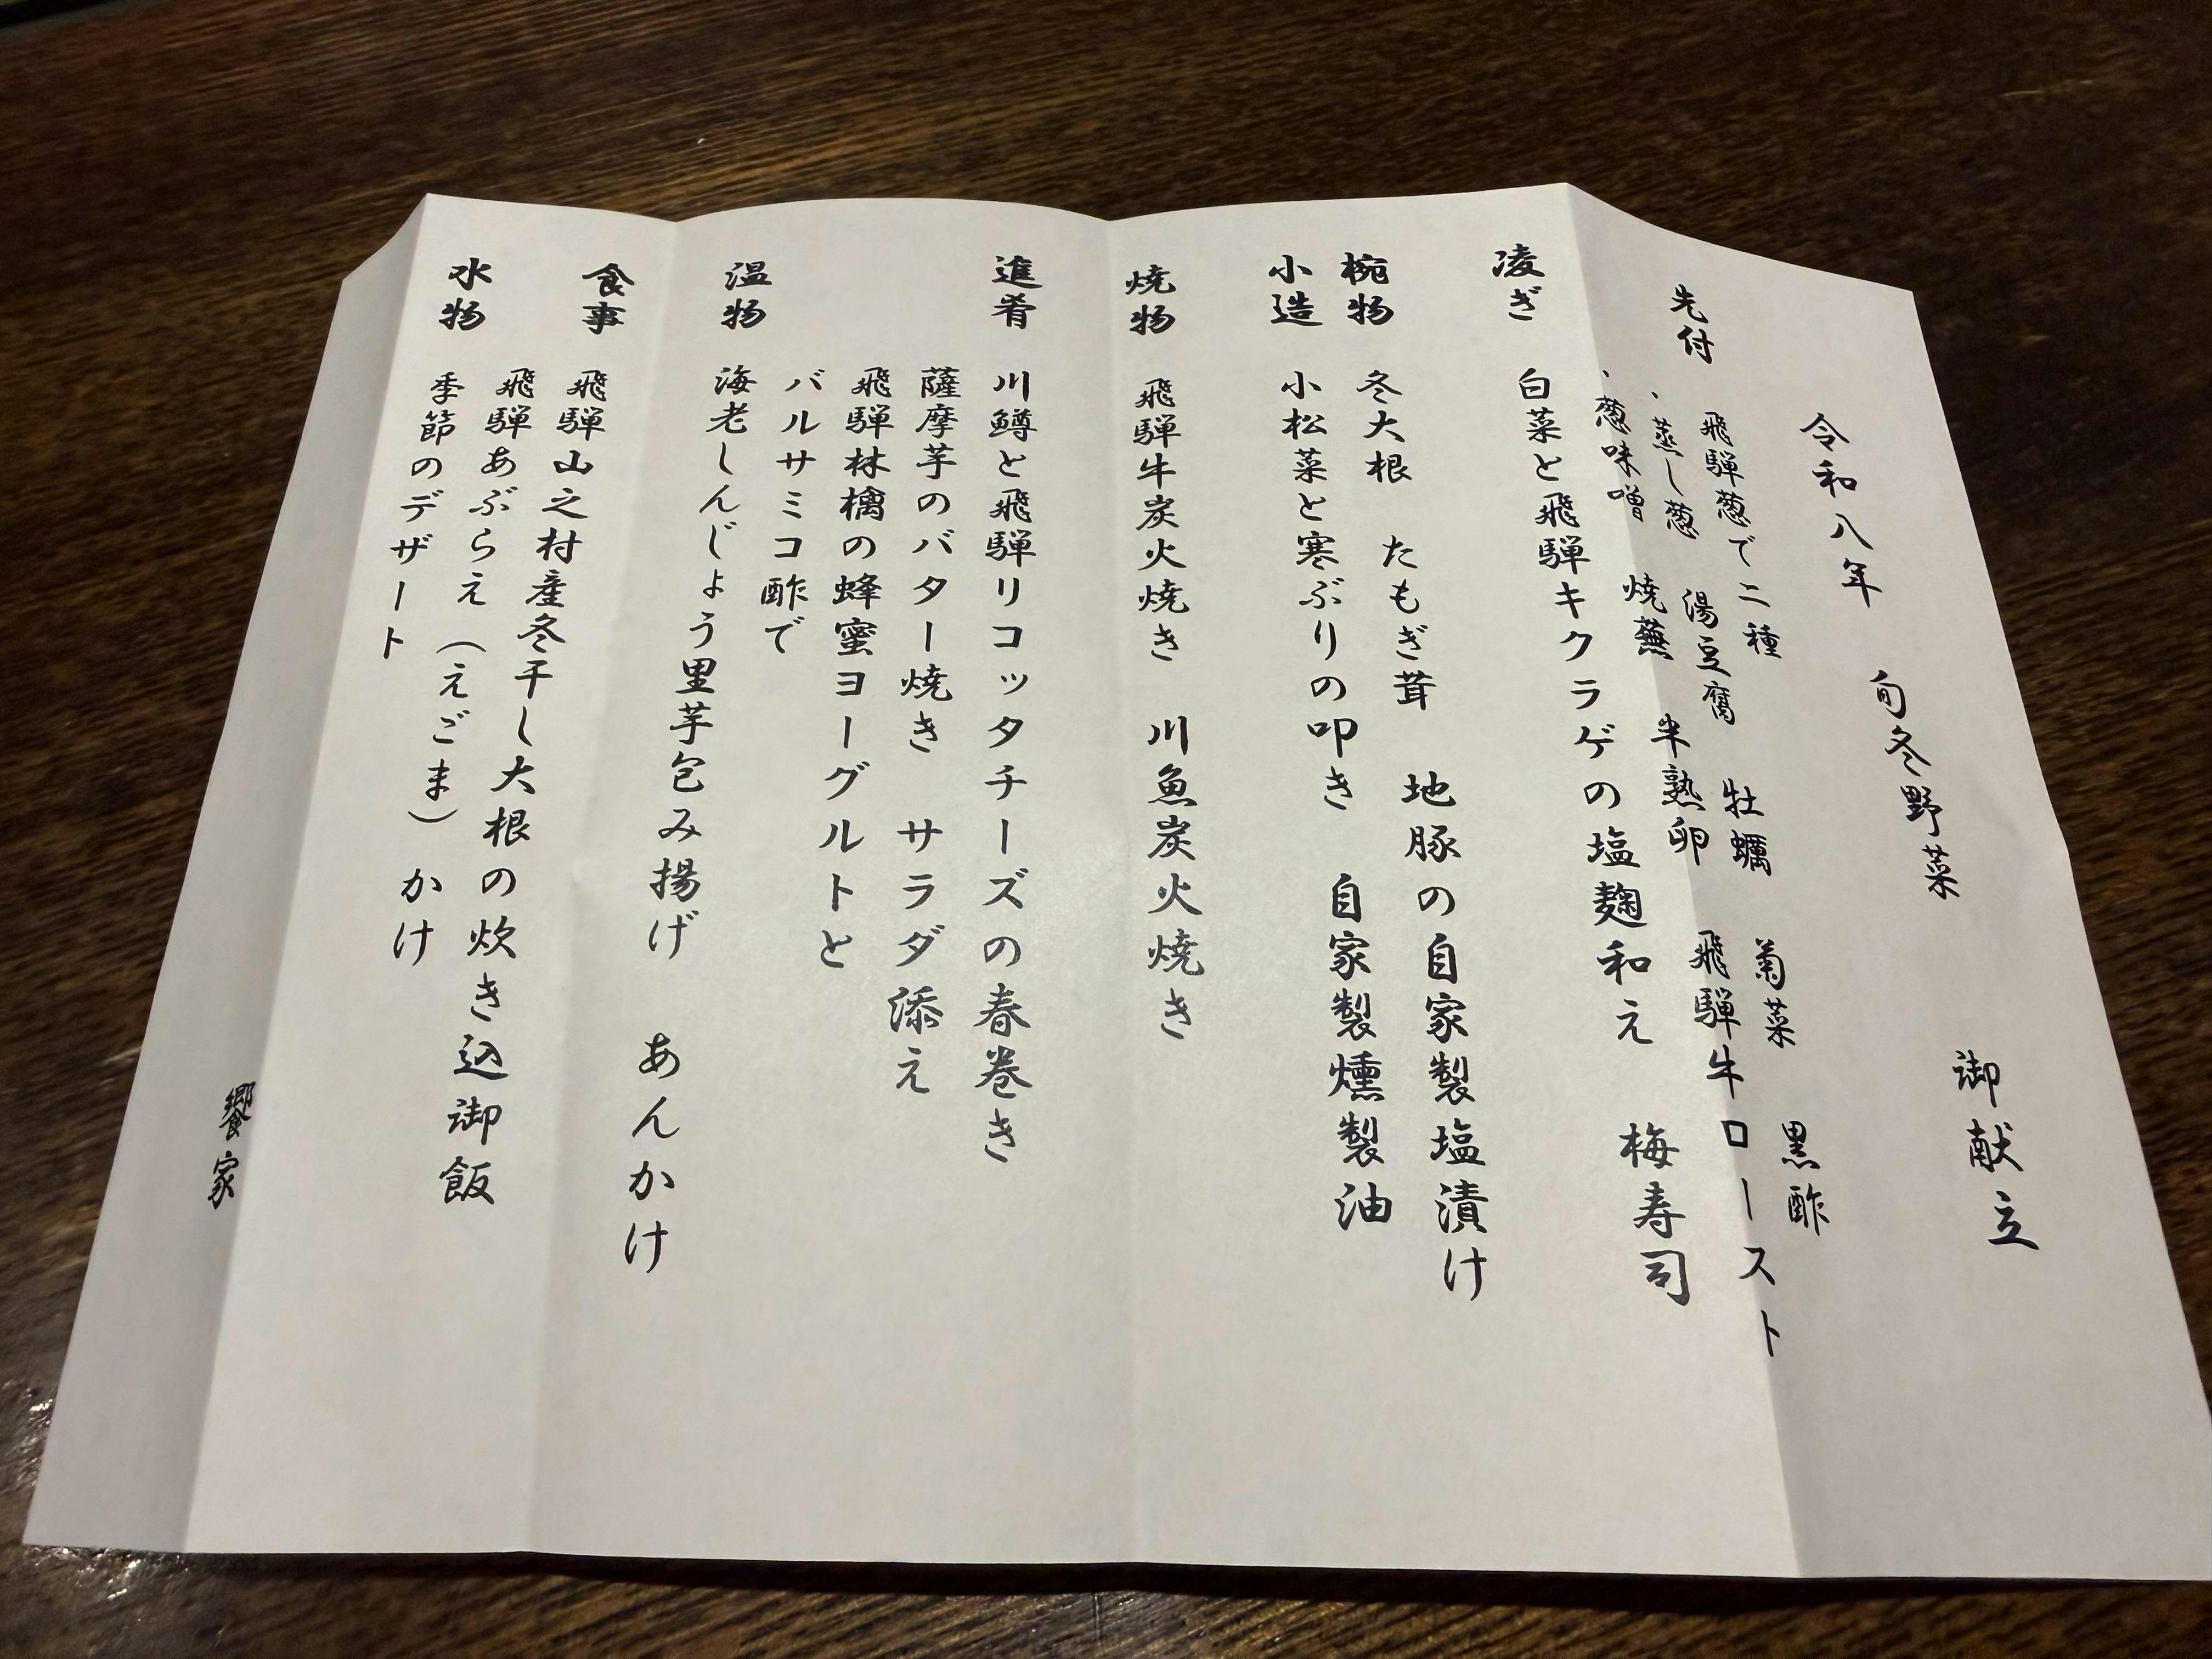 御献立
令和八年 旬冬野菜
先付 飛騨葱で二種
・蒸し葱 湯豆腐 牡蠣 菊菜 黒酢
・葱味噌 焼蕪 半熟卵 飛騨牛ロースト
凌ぎ 白菜と飛騨キクラゲの塩麹和え 梅寿司
椀物 冬大根 たもぎ茸 地豚の自家製塩漬け
小造 小松菜と寒ぶりの叩き 自家製燻製油
焼物 飛騨牛炭火焼き 川魚炭火焼き
進肴 川鱒と飛騨リコッタチーズの春巻き
薩摩芋のバター焼き サラダ添え
飛騨林檎の蜂蜜ヨーグルトと
バルサミコ酢で
温物 海老しんじょう里芋包み揚げ あんかけ
食事 飛騨山之村産冬干し大根の炊き込御飯
飛騨あぶらえ(えごま) かけ
水物 季節のデザート
饗家